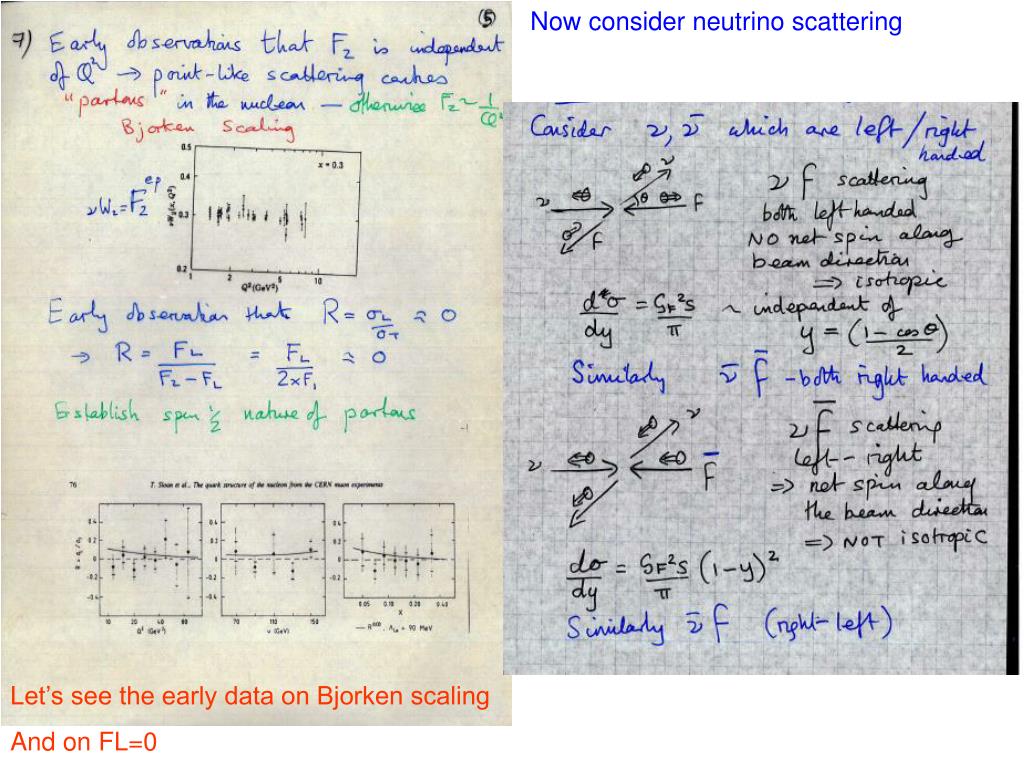 Now consider neutrino scattering
5
7) Early observations that F₂ is independent
of Q² → point-like scattering centres
"partons" in the nucleon — otherwise F₂ ~ 1/Q²
Bjorken Scaling
νW₂ = F₂^ep
νW₂(x, Q²)
0.5
0.4
0.3
0.2
x = 0.3
1 2 5 10
Q² (GeV²)
Early observation that R = σL/σT ≈ 0
→ R = FL/(F₂ − FL) = FL/2xF₁ ≈ 0
Establish spin ½ nature of partons
76 T. Sloan et al., The quark structure of the nucleon from the CERN muon experiments
0.4 0.4 0.4
0.2 0.2 0.2
0 0 0
-0.2 -0.2 -0.2
-0.4
10 20 40 80
Q² (GeV²)
70 110 150
ν (GeV)
0.05 0.10 0.20 0.40
X
Let's see the early data on Bjorken scaling
And on FL=0
Consider ν, ν̄ which are left/right
handed
ν ν θ F
F
ν F scattering
both left handed
NO net spin along
beam direction
⇒ isotropic
dσ/dy = GF²s/π ~ independent of
y = (1 − cos θ)/2
Similarly ν̄ F̄ - both right handed
ν ν F̄
ν F̄ scattering
left - right
⇒ net spin along
the beam direction
⇒ NOT isotropic
dσ/dy = GF²s/π (1−y)²
Similarly ν̄ F (right-left)